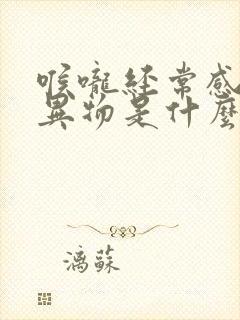 喉嚨經常感
異物是什麼
漓蘇